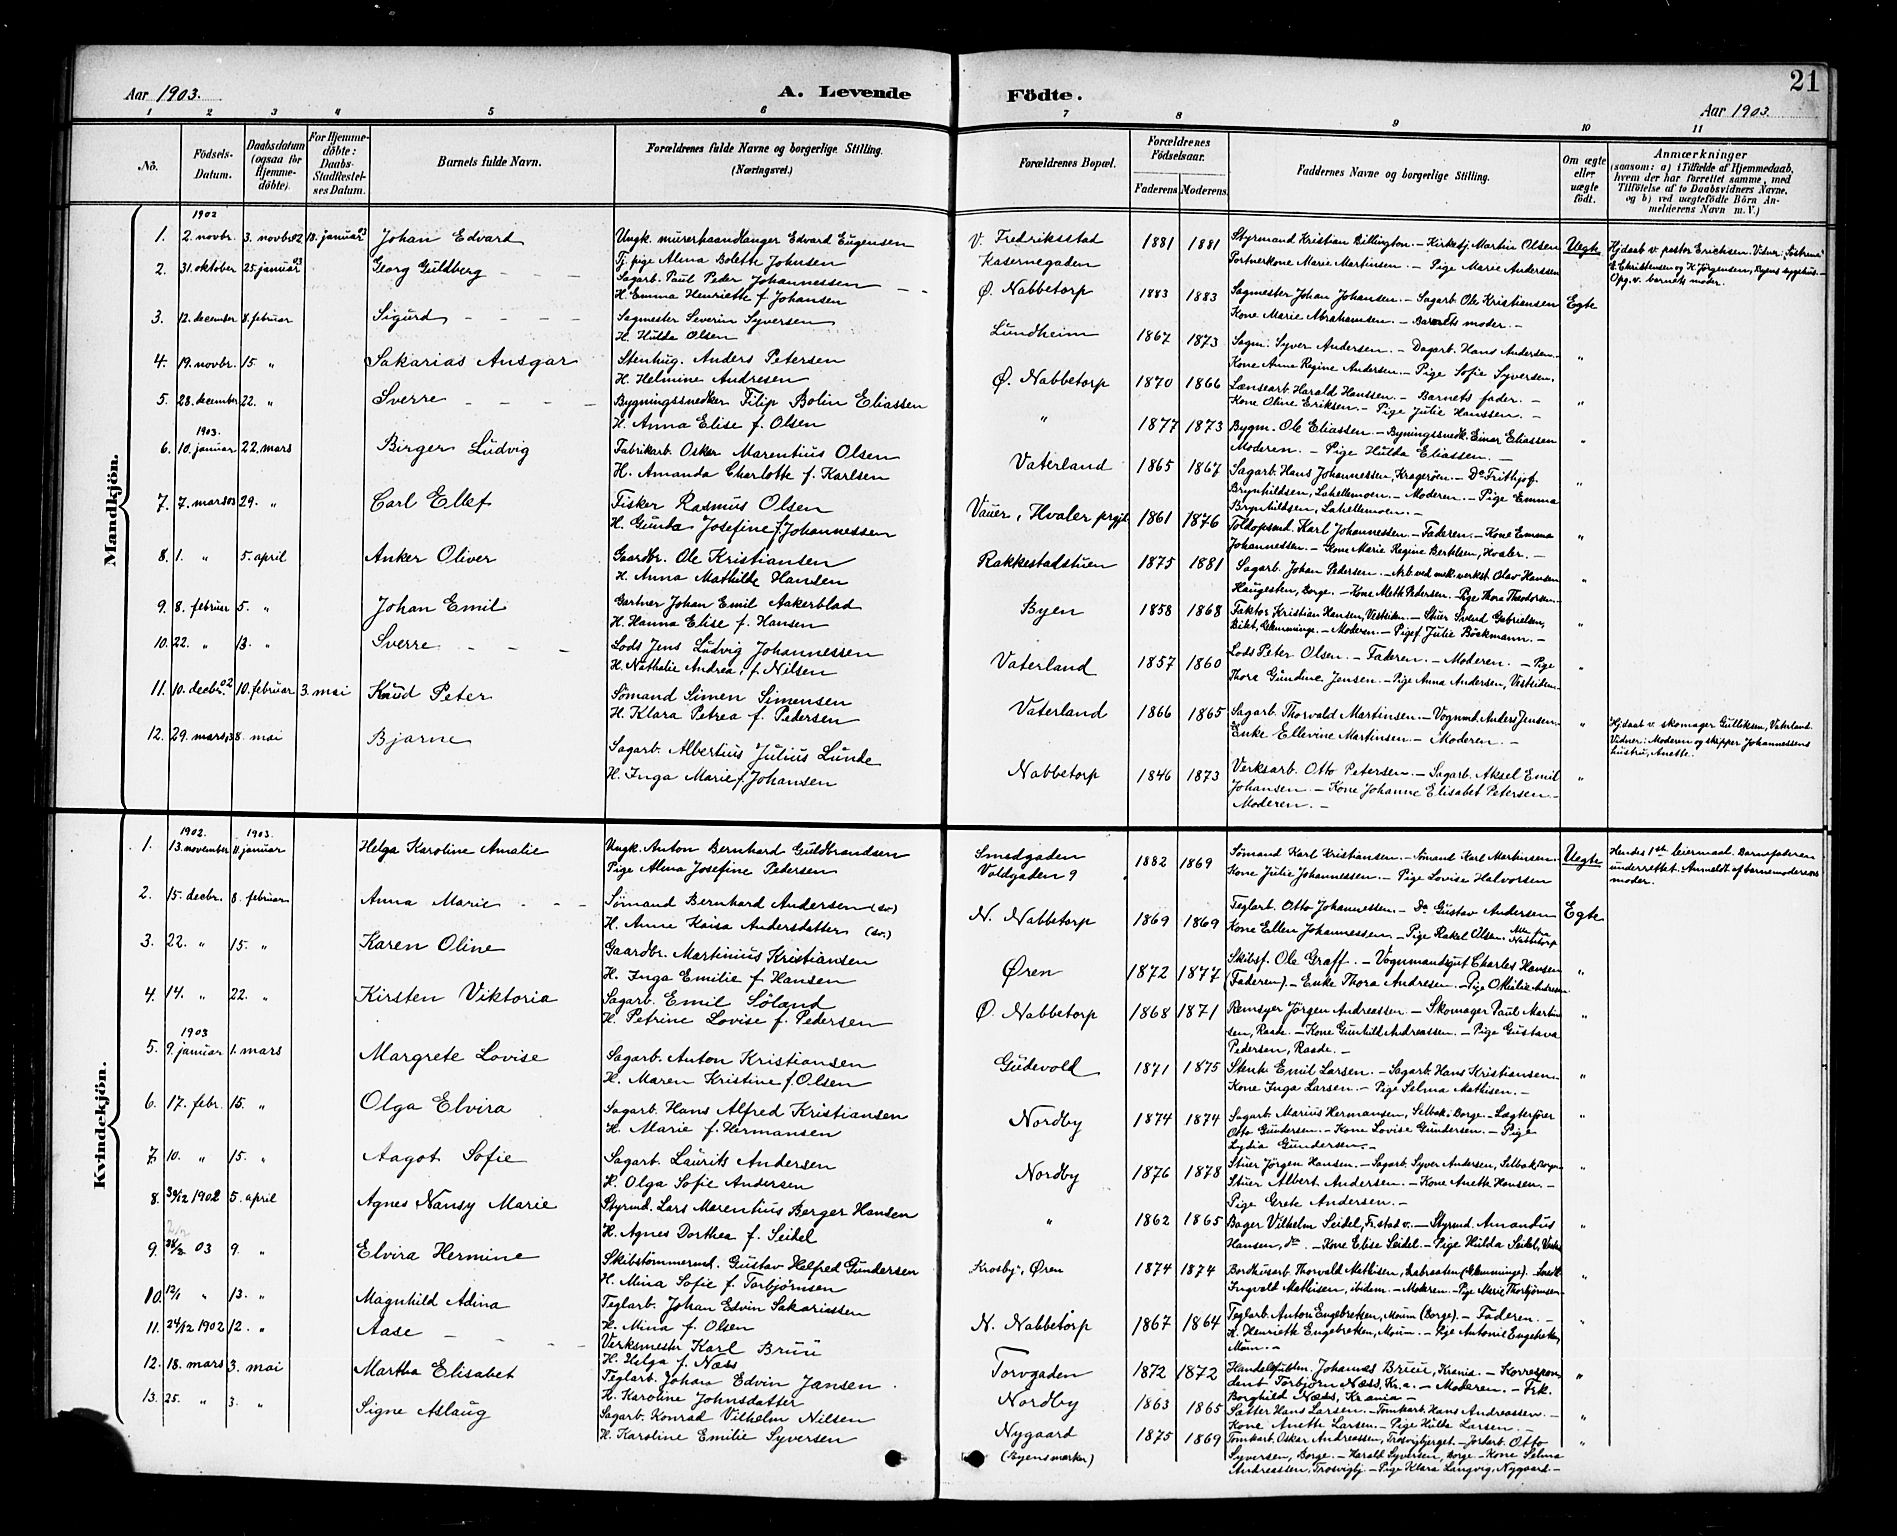 21
Aar 1903.
A. Levende
Födte.
Aar 1903.
1 2 3 4 5 6 7 8 9 10 11
No.
Födsels-Datum.
Daabsdatum (ogsaa for Hjemme-döbte).
For Hjemme-döbte: Daabs-Stadfæstel-ses Datum.
Barnets fulde Navn.
Forældrenes fulde Navne og borgerlige Stilling. (Næringsvei.)
Forældrenes Bopæl.
Forældrenes Födselsaar.
Faderens. Moderens.
Faddernes Navne og borgerlige Stilling.
Om ægte eller uægte födt.
Anmærkninger
(saasom: a) i Tilfælde af Hjemmedaab, hvem der har forrettet samme, med Tilföielse af to Daabsvidners Navne, og b) ved uægtefödte Börn An-melderens Navn m. V.)
Mandkjön.
1902
1. 2. novbr. 3. novbr 02 18. januar 03 Johan Edvard
Ungk. murerhaandlanger Edvard Eugensen
Tj. pige Alma Bolette Johnsen
V. Fredriksstad
Kasernegaden
1881 1881
Styrmand Kristian Billington. – Kirkesj. Martin Olsen
Portnerkone Marie Martinsen. – Pige Marie Anderssen
Uegte
Hjdaab v. pastor Erichsen. Vidner: Söstrene
E. Christensen og K. Jörgensen, Byens sygehus. –
Opg. v. barnets moder.
2. 31. oktober 25. januar 03 Georg Guldberg
Sagarb. Paul Peder Johannessen
H. Emma Henriette f. Johansen
Ø. Nabbetorp
1883 1883
Sagmester Johan Johansen. – Sagarb. Ole Kristiansen
Kone Marie Abrahamsen. – Barnets moder. –
Egte
3. 12. december 8. februar Sigurd
Sagmester Severin Syversen
H. Hulda Olsen
Lundheim
1867 1873
Sagm. Syver Andersen. – Dagarb. Hans Andersen. –
Kone Anne Regine Andersen. – Pige Sofie Syversen.
"
4. 19. novbr. 15. " Sakarias Ansgar
Stenhug. Anders Petersen
H. Helmine Andresen
Ø. Nabbetorp
1870 1866
Lænsearb. Harald Hanssen. – Barnets fader. –
Kone Oline Eriksen. – Pige Julie Hanssen. –
"
5. 28. december 22. " Sverre
Bygningssnedker Filip Bolin Eliassen
H. Anna Elise f. Olsen
"
1877 1873
Bygm. Ole Eliassen. – Bygningssnedk. Einar Eliassen
Moderen. – Pige Hulda Eliassen. –
"
1903.
6. 10. januar 22. mars Birger Ludvig
Fabrikarb. Oskar Marentius Olsen
H. Amanda Charlotte f. Karlsen
Vaterland
1865 1867
Sagarb. Hans Johannessen, Kragerøen. – Do Frithjof
Brynhildsen, Lahellemoen. – Moderen. – Pige Emma
Brynhildsen, Lahellemoen. –
"
7. 7. mars 03 29. " Carl Ellef
Fisker Rasmus Olsen
H. Gunda Josefine f. Johannessen
Vauer, Hvaler prgjl.
1861 1876
Toldopsmd. Karl Johannessen. – Faderen. – Kone Emma
Johannessen. – Kone Marie Regine Bertelsen, Hvaler. –
"
8. 1. " 5. april Anker Oliver
Gaardbr. Ole Kristiansen
H. Anna Mathilde Hansen
Rakkestadstuen
1875 1881
Sagarb. Johan Pedersen. – Arb. ved mek. verkst. Olav Hansen
Haugesten, Borge. – Kone Mette Pedersen. – Pige Thora Theodorsen. –
"
9. 8. februar 5. " Johan Emil
Gartner Johan Emil Aakerblad
H. Hanna Elise f. Hansen
Byen
1858 1868
Faktor Kristian Hansen, Vestsiden. – Stuer Svend Gabrielsen,
Bilet, Glemminge. – Moderen. – Pige f. Julie Böckmann. –
"
10. 22. " 13. " Sverre
Lods Jens Ludvig Johannessen
H. Nathalie Andrea, f. Nilsen
Vaterland
1857 1860
Lods Peter Olsen. – Faderen. – Moderen. – Pige
Thora Gundine Jensen. – Pige Anna Andersen, Vestsiden. –
"
11. 10. decbr. 02 10. februar 3. mai Knud Peter
Sömand Simen Simensen
H. Klara Petrea f. Pedersen
Vaterland
1866 1865
Sagarb. Thorvald Martinsen. – Vognmd. Anders Jensen. –
Enke Ellevine Martinsen – Moderen. –
"
Hjdaab v. skomager Gulliksen, Vaterland.
Vidner: Moderen og skipper Johannessens
hustru, Anette.
12. 29. mars 03 8. mai Bjarne
Sagarb. Albertius Julius Lunde
H. Inga Marie f. Johansen
Nabbetorp
1846 1873
Verksarb. Otto Petersen. – Sagarb. Aksel Emil
Johansen. – Kone Johanne Elisabet Petersen. –
Moderen. –
"
Kvindekjön.
1902. 1903.
1. 13. november 11. januar Helga Karoline Amalie
Ungk. Anton Bernhard Guldbrandsen
Pige Alma Josefine Pedersen
Smedgaden
Voldgaden 9
1882 1869
Sömand Karl Kristiansen. – Sömand Karl Martinsen.
Kone Julie Johannessen. – Pige Lovise Halvorsen
Uegte
Hendes 1ste leiermaal. Barnefaderen
underrettet. Anmeldt af barnemoderens
moder.
2. 15. decbr. 8. februar Anna Marie
Sömand Bernhard Andersen (sv.)
H. Anna Kaisa Andersdatter (sv.)
N. Nabbetorp
1869 1869
Teglarb. Otto Johannessen. – Do Gustav Andersen
Kone Ellen Johannessen. – Pige Rakel Olsen. Alle fra Nabbetorp
Egte
3. 22. " 15. " Karen Oline
Gaardbr. Martinius Kristiansen
H. Inga Emilie f. Hansen
Øren
1872 1877
Skibsf. Ole Graff. – Vognmandsgut Charles Hansen
(Faderen). – Enke Thora Andresen. – Pige Otilie Andresen
"
4. 14. " 22. " Kirsten Viktoria
Sagarb. Emil Söland
H. Petrine Lovise f. Pedersen
Ø. Nabbetorp
1868 1871
Remsyer Jörgen Andreassen. – Skomager Paul Martin
sen, Raade. – Kone Gunhild Andreassen. – Pige Gustava
Pedersen, Raade. –
"
1903
5. 9. januar 1. mars Margrete Lovise
Sagarb. Anton Kristiansen
H. Maren Kristine f. Olsen
Gudevold
1871 1875
Stenh. Emil Larsen. – Sagarb. Hans Kristiansen. –
Kone Inga Larsen. – Pige Selma Mathisen. –
"
6. 17. febr. 15. " Olga Elvira
Sagarb. Hans Alfred Kristiansen
H. Marie f. Hermansen
Nordby
1874 1874
Sagarb. Marius Hermansen, Selbak, Borge. – Lægterfører
Otto Gundersen. – Kone Lovise Gundersen. – Pige
Lydia Gundersen. –
"
7. 10. " 15. " Aagot Sofie
Sagarb. Laurits Andersen
H. Olga Sofie Andersen
Nordby
1876 1878
Stuer Jörgen Hansen. – Sagarb. Syver Andersen, Selbak, Borge.
Stuer Albert Andersen. – Kone Anette Hansen. –
Pige Grete Andersen. –
"
8. 30/12 1902 5. april Agnes Nansy Marie
Styrmd. Lars Marentius Berger Hansen
H. Agnes Dorthea f. Seidel
"
1862 1865
Bager Vilhelm Seidel, Fr.stad v. – Styrmd. Amandus
Hansen, do. – Kone Elise Seidel – Pige Hulda Seidel,
"
9. 03 9. " Elvira Hermine
Skibstömmermd. Gustav Helfred Gundersen
H. Mina Sofie f. Torbjörnsen
Krosby, Øren
1874 1874
Bordhusarb. Thorvald Mathisen, Labraaten (Glemminge).
Ingvald Mathisen, ibidem. – Moderen. – Pige Marie Thorbjörnsen.
"
10. 12/1 " 13. " Magnhild Adina
Teglarb. Johan Edvin Sakariassen
H. Mina f. Olsen
N. Nabbetorp
1867 1864
Teglarb. Anton Engebretsen, Moum (Borge). – Faderen. –
H. Henriette Engebretsen, Moum. – Pige Antonie Engebretsen,
Moum. –
"
11. 24/12 1902 12. " Aase
Verksmester Karl Bruu
H. Helga f. Næss
Torvgaden
1872 1872
Handelsfuldm. Johannes Bruu, Krania. – Korrespon
dent Torbjörn Næss, Kr.a. – Moderen. – Frk.
Borghild Næss, Krania –
"
12. 18. mars 3. mai Martha Elisabet
Teglarb. Johan Edvin Jansen
H. Karoline Johnsdatter
Nordby
1863 1865
Sætter Hans Larsen. – Tomtarb. Hans Andreassen. –
Kone Anette Larsen. – Pige Hilda Larsen. –
"
13. 25. " 3. " Signe Aslaug
Sagarb. Konrad Vilhelm Nilsen
H. Karoline Emilie Syversen
Nygaard
(Byensmarker)
1875 1869
Tomtarb. Oskar Andreassen, Trosvigbjerget. – Jordarb. Otto
Syversen, Borge. – Harald Syversen, Borge – Kone Selma
Andreassen, Trosvigbj. – Pige Klara Langvig, Nygaard –
"